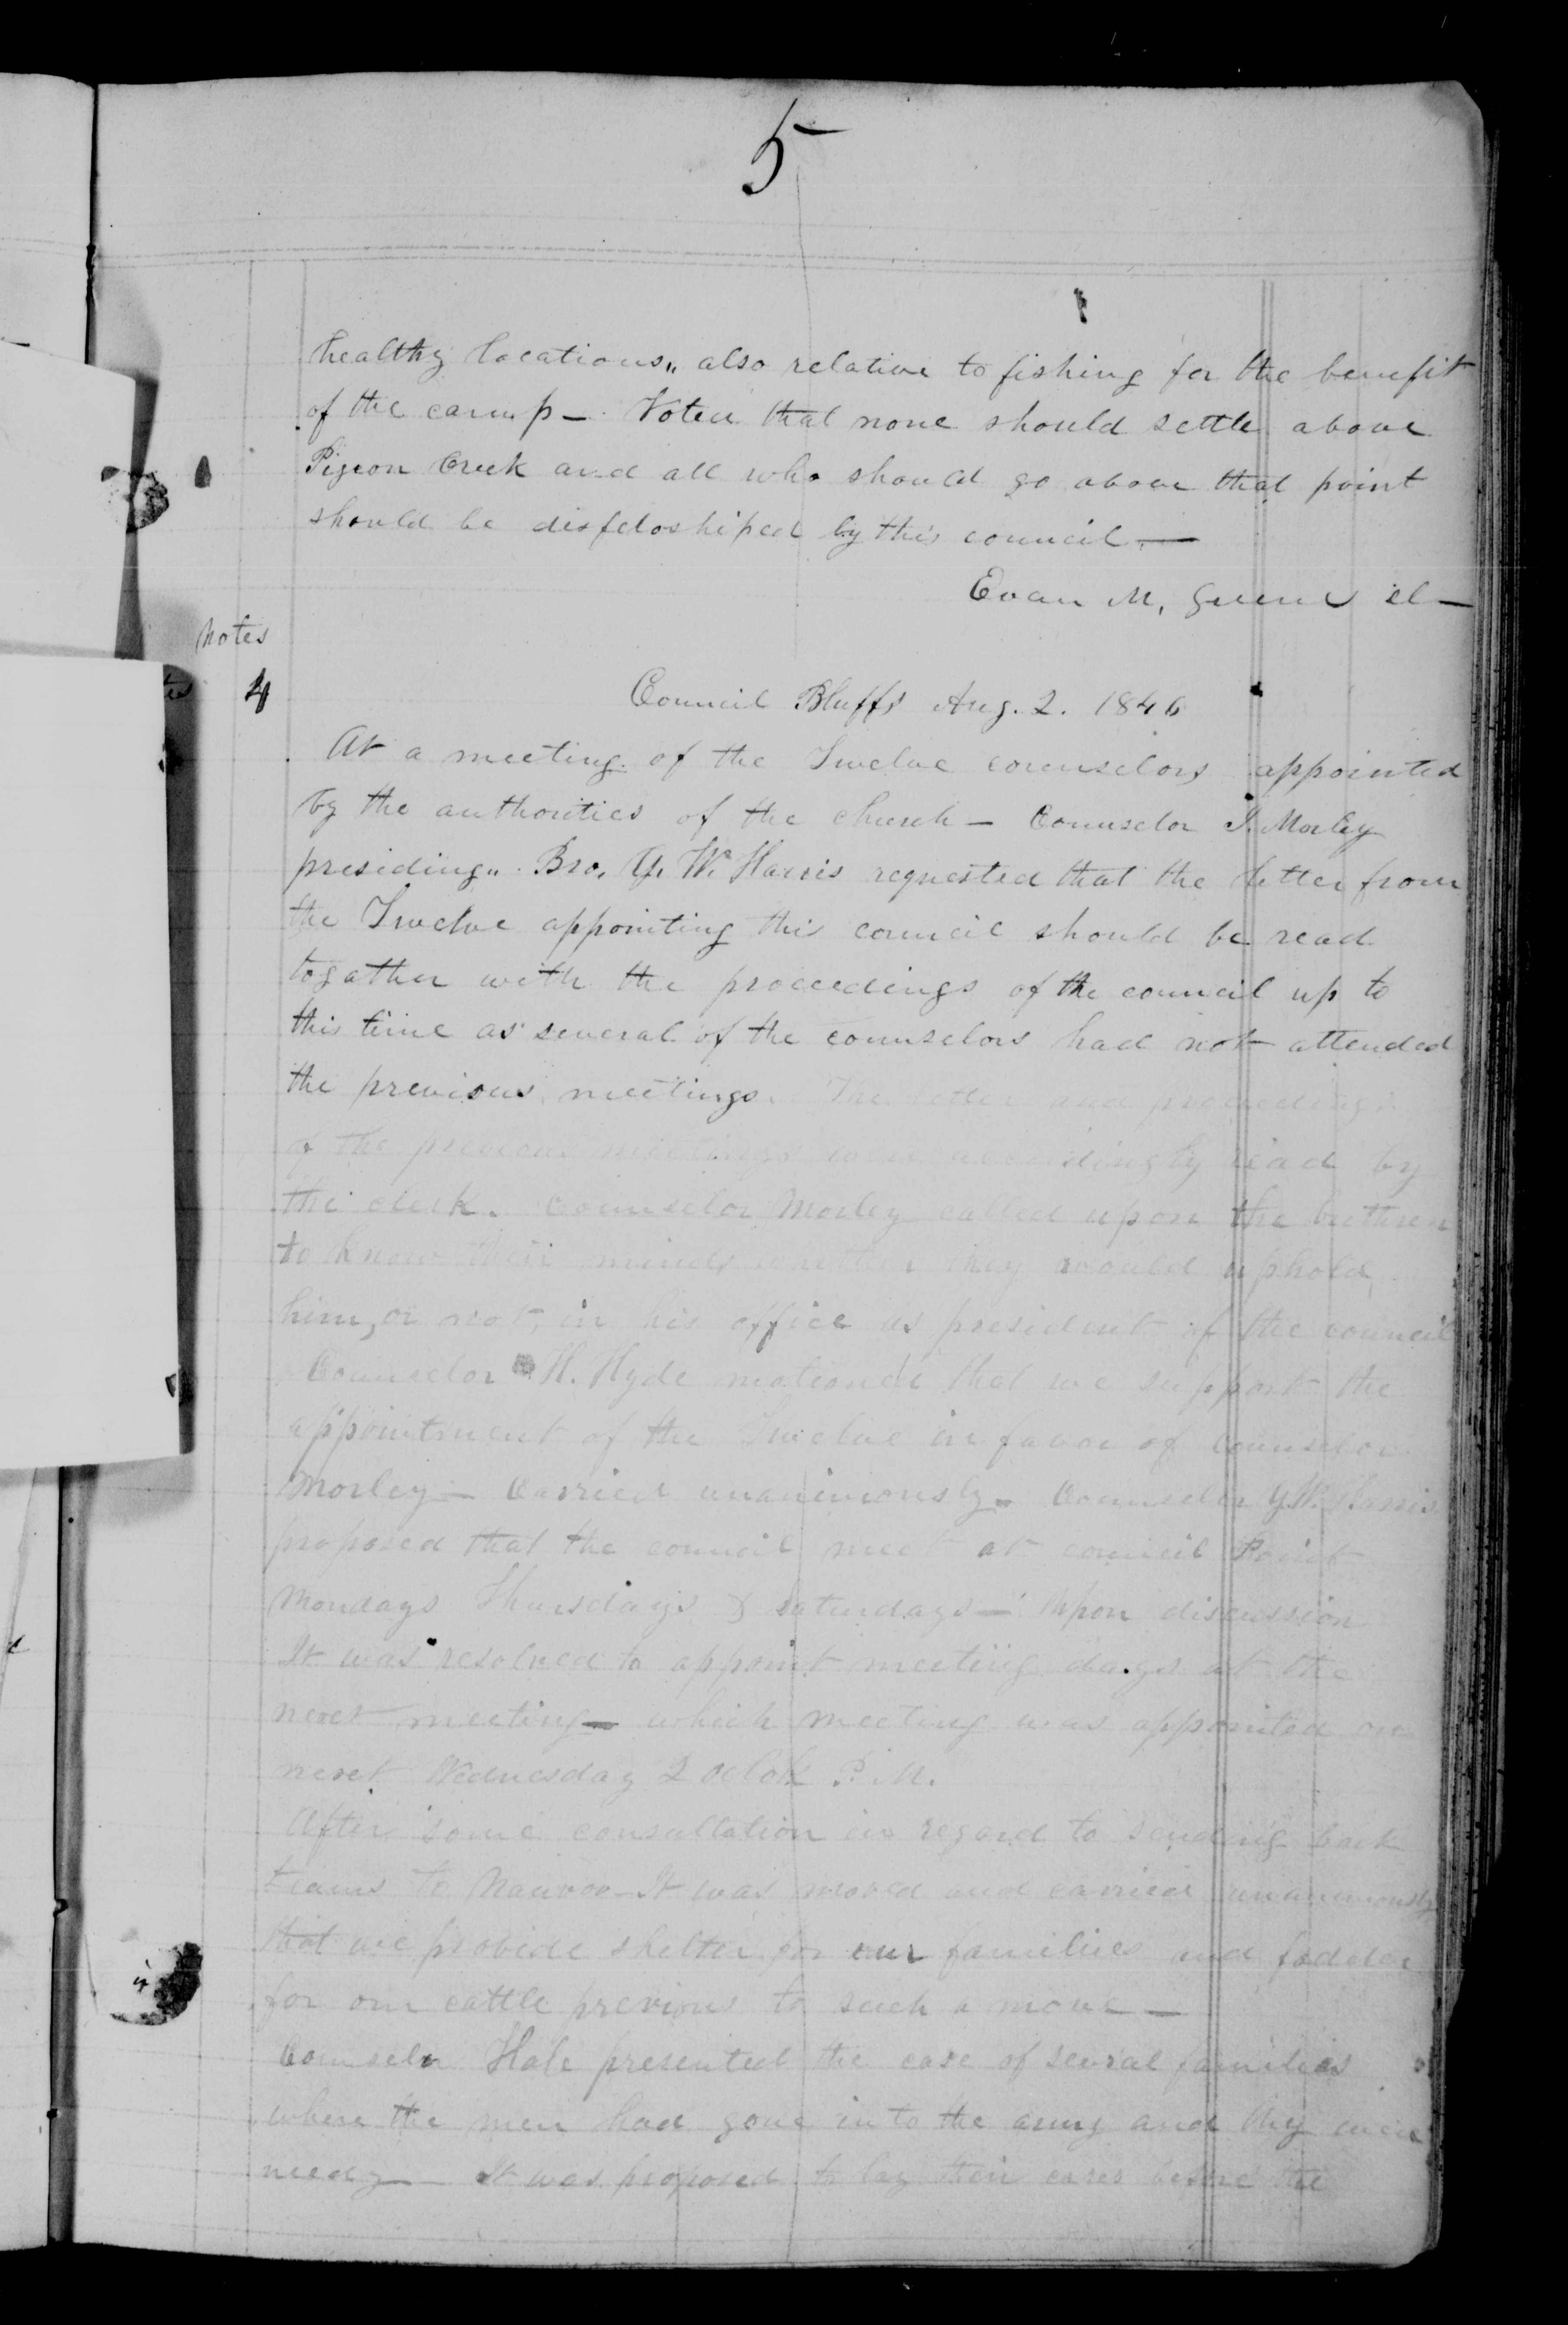 5
healthy locations,, also relative to fishing for the benefit
of the camp — Voted that none should settle above
Pigeon Creek and all who should go above that point
should be disfeloshiped by this council —
Evan M. Greene cl —
Notes
4
Council Bluffs Aug. 2. 1846
At a meeting of the Twelve counselors appointed
by the authorities of the church — Counselor I. Morley
presiding,, Bro. G. W. Harris requested that the letter from
the Twelve appointing this council should be read
togather with the proceedings of the council up to
this time as several of the counselors had not attended
the previous meetings. The letter and proceedings
of the previous meetings were accordingly read by
the clerk. Counselor Morley called upon the brethren
to know their minds whether they would uphold
him, or not, in his office as president of the council
Counselor H. Hyde motioned that we support the
appointment of the Twelve in favor of counselor
Morley — Carried unanimously — Counselor G. W. Harris
proposed that the council meet at council Point
Mondays Thursdays & saturdays — Upon discussion
It was resolved to appoint meeting days at the
next meeting — which meeting was appointed on
next Wednesday 2 oclok P.M.
After some consultation in regard to sending back
teams to Nauvoo — It was moved and carried unanimously
that we provide shelter for our families and fodder
for our cattle previous to such a move —
Counselor Hale presented the case of several families
where the men had gone into the army and they were
needy — It was proposed to lay their cases before the